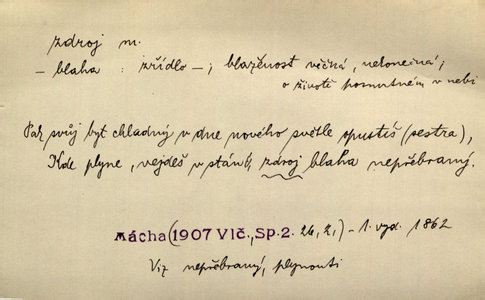 zdroj m.
— blaha : zřídlo —; blaženost věčná, nekonečná;
o životě posmrtném v nebi
Pak svůj byt chladný v dne nového světle opustíš (sestra),
Kde plyne, vejdeš v stánk, zdroj blaha nepřebraný.
Mácha (1907 Vlč., Sp. 2. 26, 2,) – 1. vyd. 1862
Viz nepřebraný, plynouti